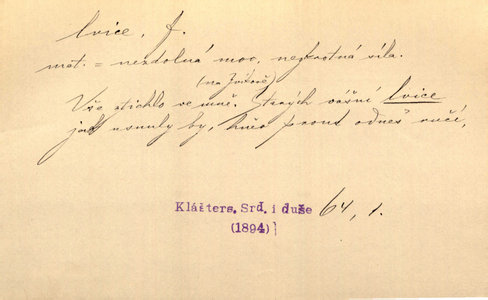 lvice, f.
met. = nezdolná moc, nezkrotná síla.
(na Zvíkově)
Vše ztichlo ve mně. Starých vášní lvice
jak usnuly by,
proud odneš ručí,
Klášters. Srd. i duše 64, 1.
(1894)